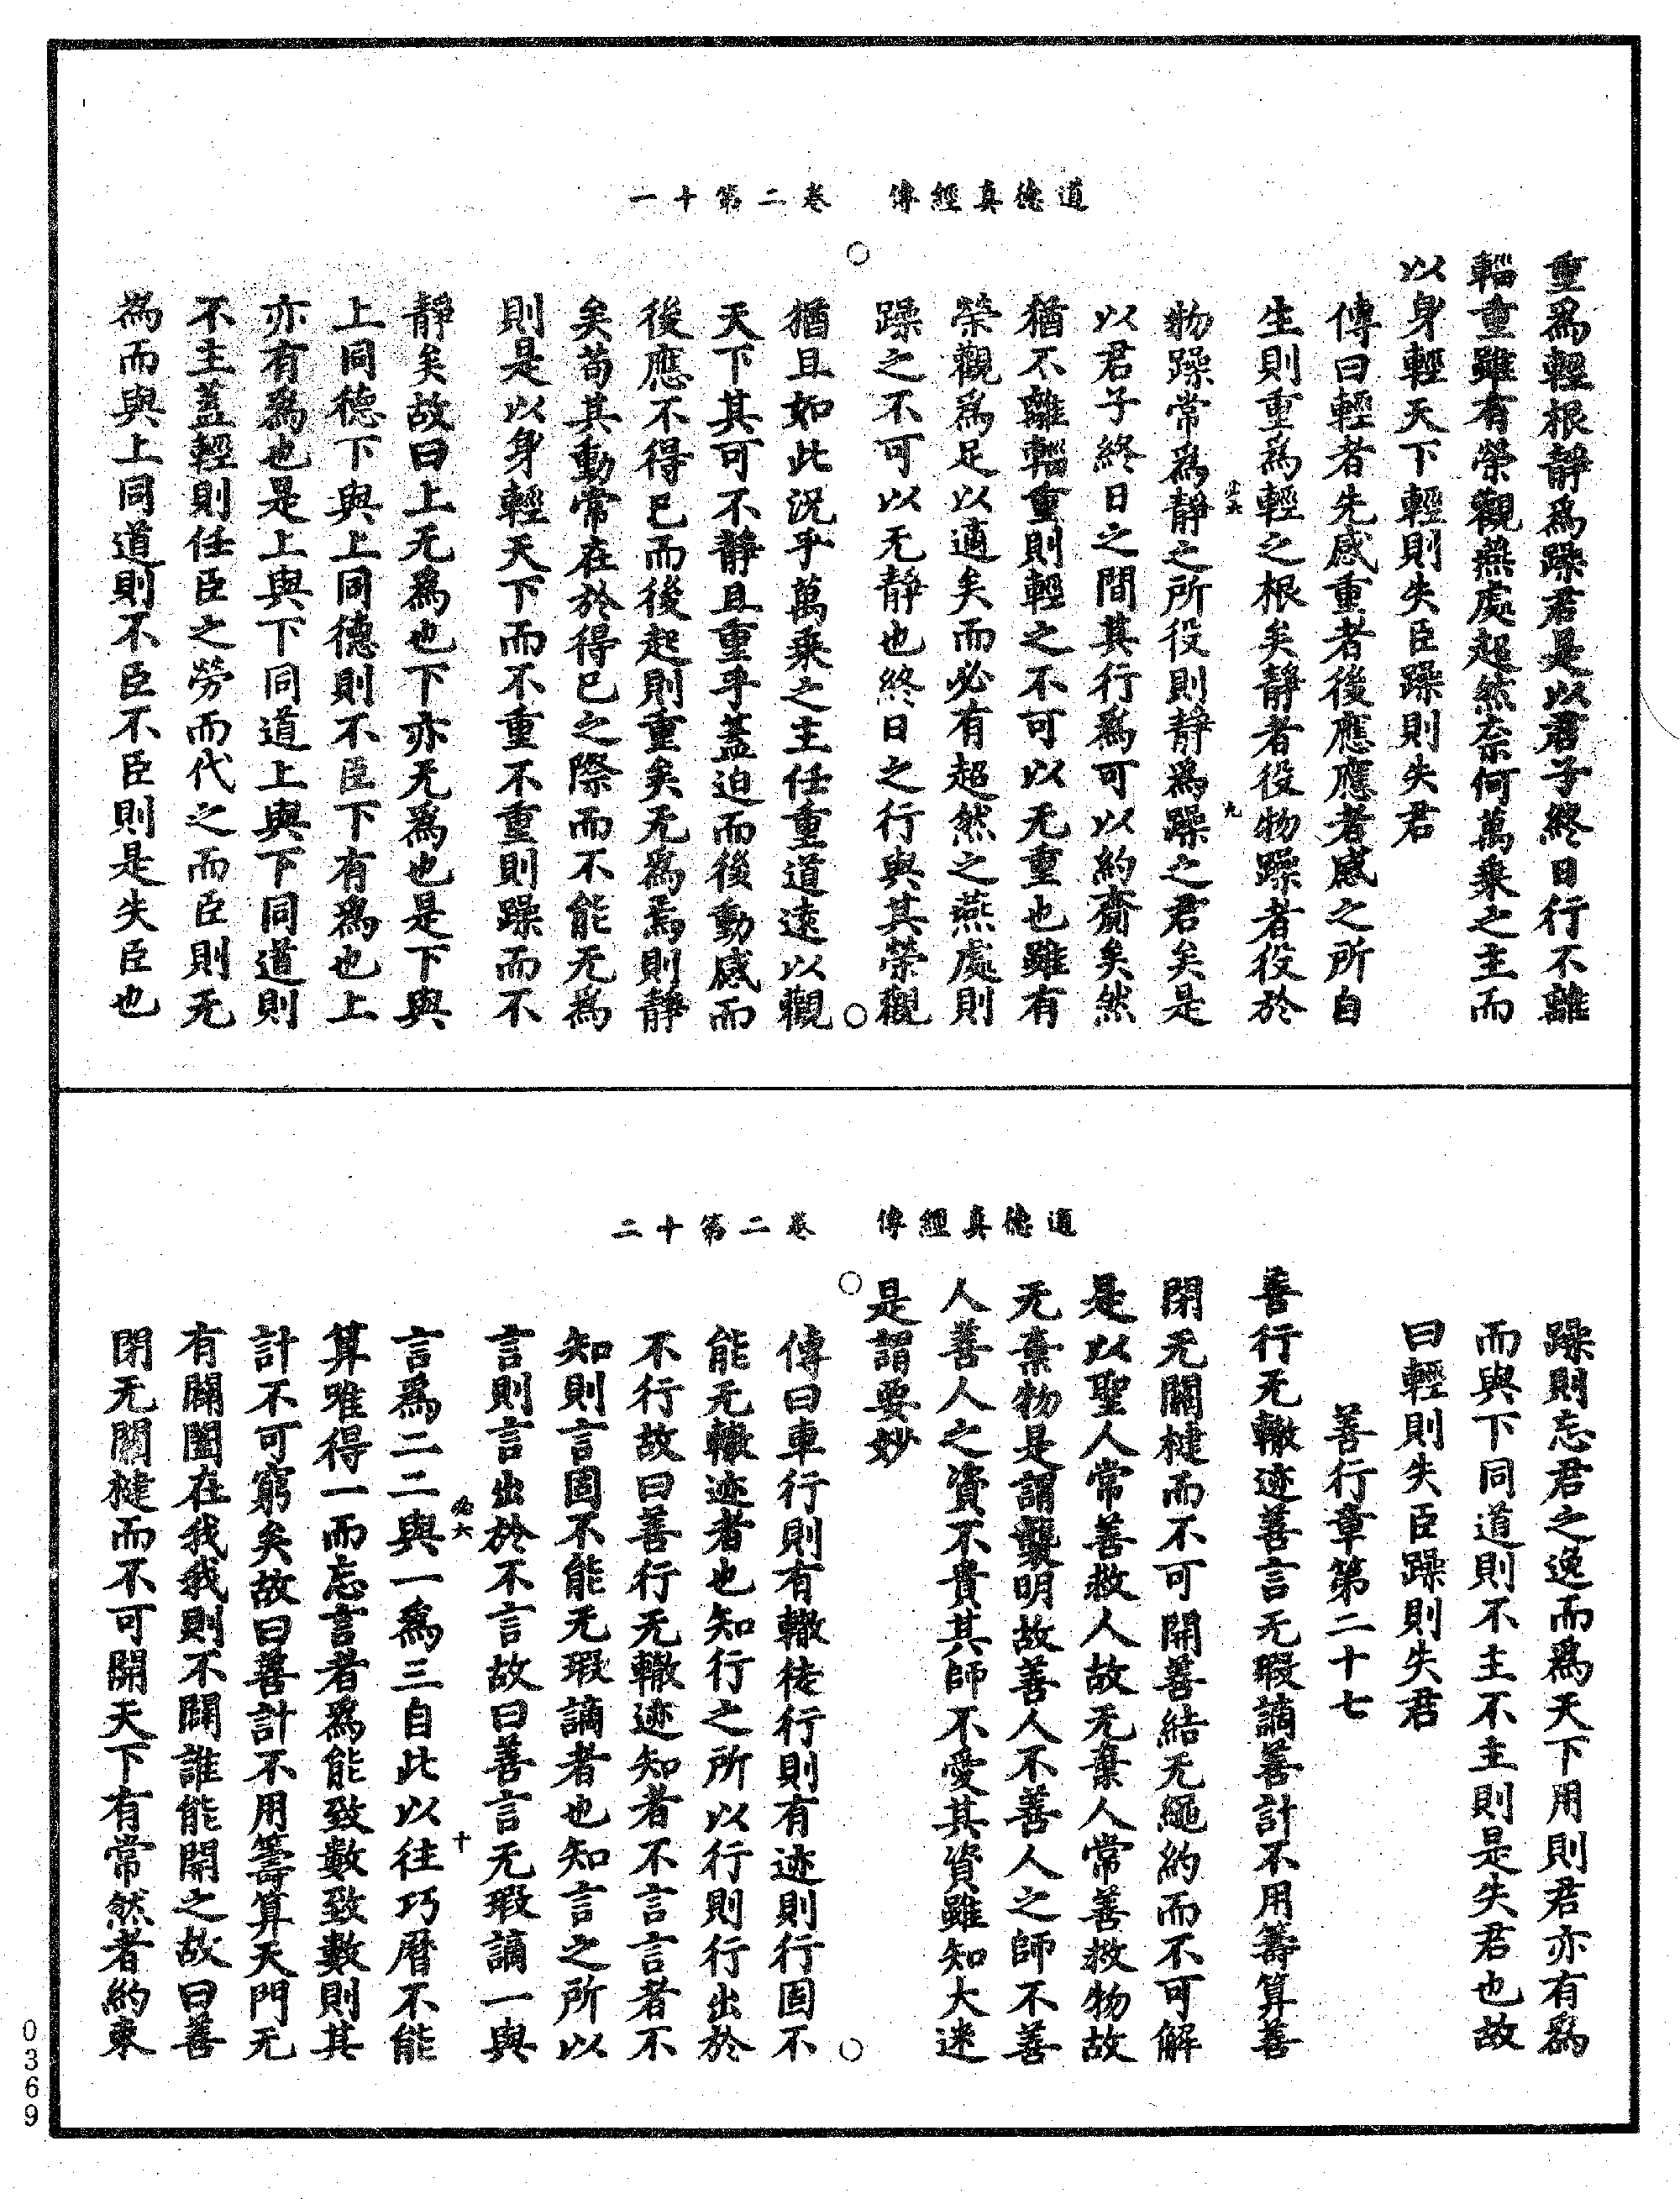 道德真經傳　卷二第十一
重爲輕根靜爲躁君是以君子終日行不離
輜重雖有榮觀燕處超然奈何萬乘之主而
以身輕天下輕則失臣躁則失君
傳曰輕者先感重者後應應者感之所自
生則重爲輕之根矣靜者役物躁者役於
六　九
物躁常爲靜之所役則靜爲躁之君矣是
以君子終日之間其行爲可以約齎矣然
猶不離輜重則輕之不可以无重也雖有
榮觀爲足以適矣而必有超然之燕處則
躁之不可以无靜也終日之行與其榮觀
猶且如此況乎萬乘之主任重道遠以觀
天下其可不靜且重乎蓋迫而後動感而
後應不得已而後起則重矣无爲焉則靜
矣苟其動常在於得已之際而不能无爲
則是以身輕天下而不重不重則躁而不
靜矣故曰上无爲也下亦无爲也是下與
上同德下與上同德則不臣下有爲也上
亦有爲也是上與下同道上與下同道則
不主蓋輕則任臣之勞而代之而臣則无
爲而與上同道則不臣不臣則是失臣也
道德真經傳　卷二第十二
躁則忘君之逸而爲天下用則君亦有爲
而與下同道則不主不主則是失君也故
曰輕則失臣躁則失君
善行章第二十七
善行无轍迹善言无瑕讁善計不用籌算善
閉无關楗而不可開善結无繩約而不可解
是以聖人常善救人故无棄人常善救物故
无棄物是謂襲明故善人不善人之師不善
人善人之資不貴其師不愛其資雖知大迷
是謂要妙
傳曰車行則有轍徒行則有迹則行固不
能无轍迹者也知行之所以行則行出於
不行故曰善行无轍迹知者不言言者不
知則言固不能无瑕讁者也知言之所以
言則言出於不言故曰善言无瑕讁一與
六　十
言爲二二與一爲三自此以往巧曆不能
算唯得一而忘言者爲能致數致數則其
計不可窮矣故曰善計不用籌算天門无
有開闔在我我則不闢誰能開之故曰善
閉无關楗而不可開天下有常然者約束
0369